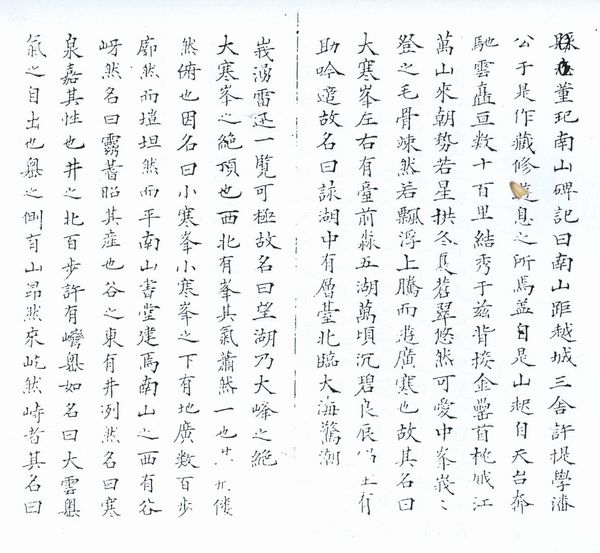 縣志董玘南山碑記曰南山距越城三舍許提學潘
公于是作藏修遊息之所焉蓋自是山起自天台奔
馳雲矗亘數十百里結秀于茲背挨金罍首枕娥江
萬山來朝势若星拱冬夏蒼翠悠然可愛中峯峩〻
登之毛骨竦然若飄浮上騰而遊廣寒也故其名曰
大寒峯左右有臺前淼五湖萬頃沉碧良辰 士有
助吟 故名曰詠湖中有層臺北臨大海驚潮
峩湧雷还一覧可極故名曰望湖乃大峰之絶
大寒峯之絶頂也西北有峯其氣蕭然一也其 僂
然俯也因名曰小寒峯小寒峯之下有地廣数百步
廓然而塏坦然而平南山書堂建焉南山之西有谷
岈然名曰霧蓄昭其產也谷之東有井冽然名曰寒
泉嘉其性也井之北百步許有巖奥如名曰大雲奥
氣之自出也奥之側有山昂然來屹然峙者其名曰